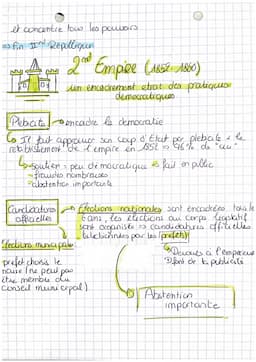 et concentre tous les pouvoirs
=> Fin IInd République
2nd Empire (1852-1870)
un encadrement étroit des pratiques
démocratiques
Plébicite → encadre la démocratie
Il fait approuver son coup d'Etat par plébicite + le
rétablissement de l'empire en 1852 => 96% de "oui"
↳ soutien = peu démocratique => fait en public
- fraudes nombreuses
- abstention importante
Candidatures
officielles
→ Elections nationales sont encadrées tous les
6 ans, les élections au corps législatif
sont organisées => candidatures officielles
sélectionnées par les préfets
Elections municipales:
préfet choisi le
maire (ne peut pas
être membre du
conseil municipal)
↳ Dévoués à l'empereur
font de la publicité
Abstention
importante